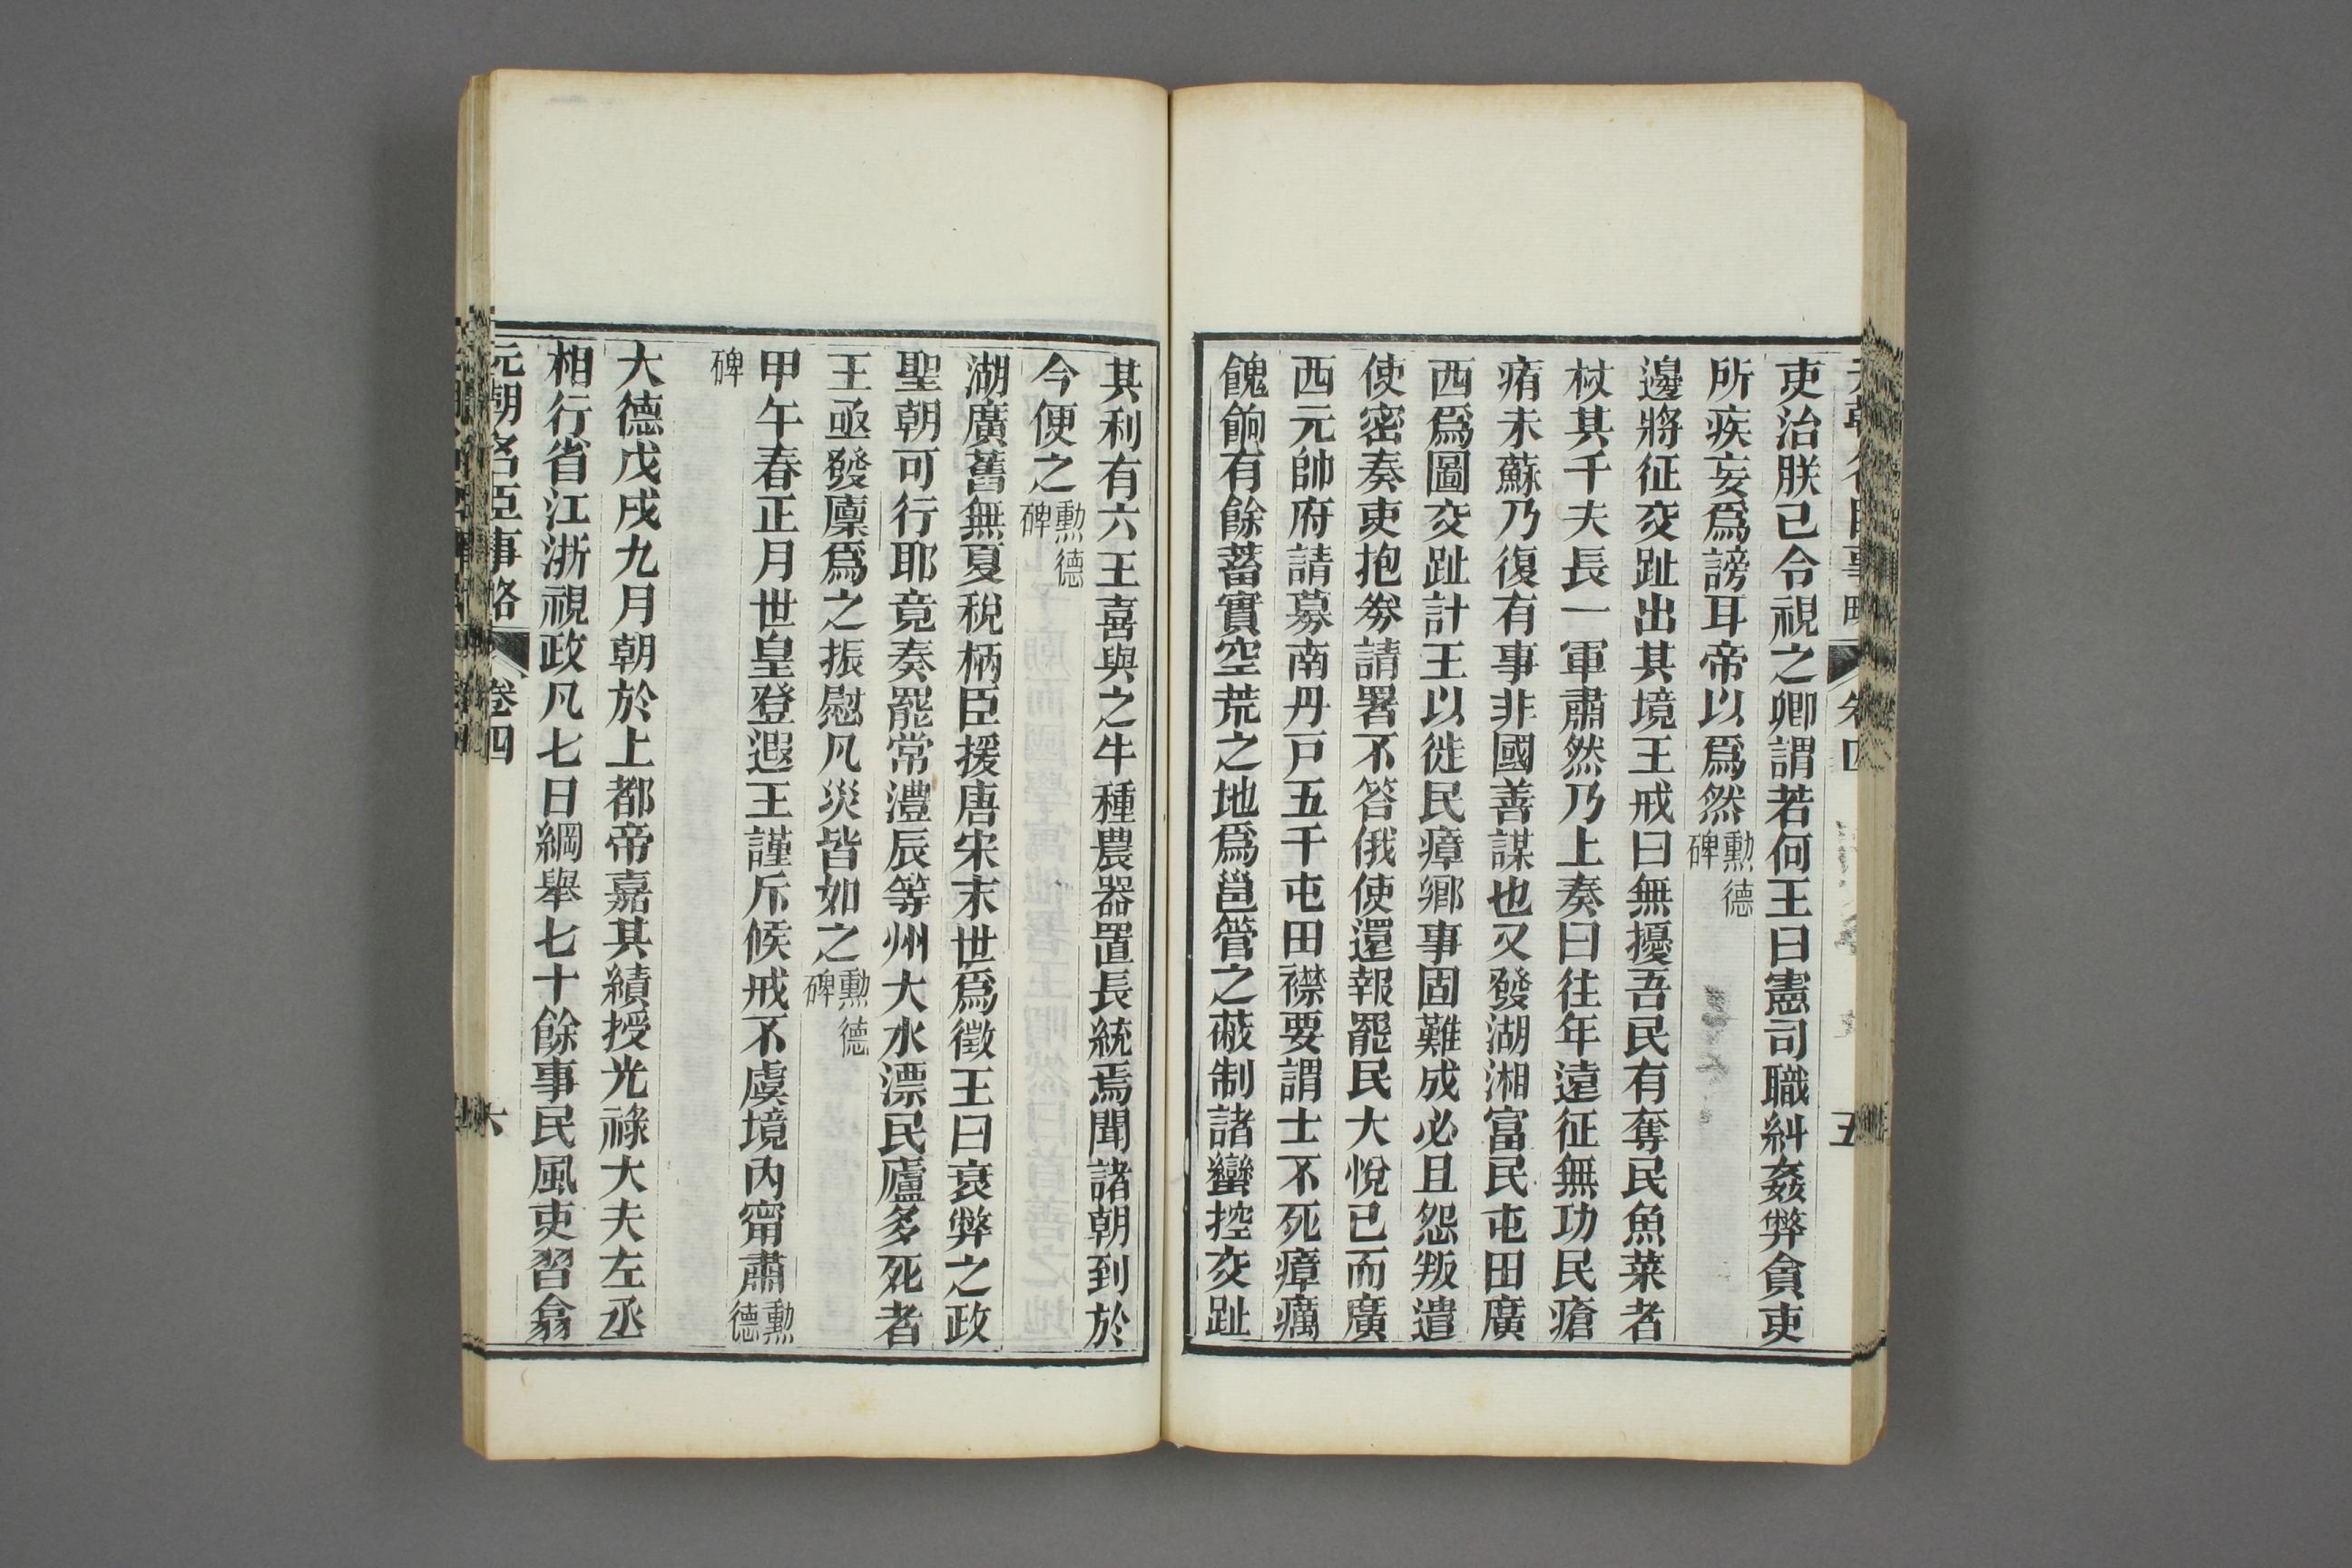 吏治朕已令視之卿謂若何王曰憲司職糾姦弊貪吏
所疾妄爲謗耳帝以爲然勳德碑
邊將征交趾出其境王戒曰無擾吾民有奪民魚菜者
杖其千夫長一軍肅然乃上奏曰往年遠征無功民瘡
痏未蘇乃復有事非國善謀也又發湖湘富民屯田廣
西爲圖交趾計王以徙民瘴鄉事固難成必且怨叛遣
使密奏吏抱劵請署不答俄使還報罷民大悅已而廣
西元帥府請募南丹戸五千屯田襟要謂士不死瘴癘
餽餉有餘蓄實空荒之地爲邕管之蔽制諸蠻控交趾
五
其利有六王喜與之牛種農器置長統焉聞諸朝到於
今便之勳德碑
湖廣舊無夏稅柄臣援唐宋末世爲徵王曰衰弊之政
聖朝可行耶竟奏罷常澧辰等州大水漂民廬多死者
王亟發廩爲之振慰凡災皆如之勳德碑
甲午春正月世皇登遐王謹斥候戒不虞境內甯肅勳德
碑
大德戊戌九月朝於上都帝嘉其績授光祿大夫左丞
相行省江浙視政凡七日綱舉七十餘事民風吏習翕
元朝名臣事略 卷四 六